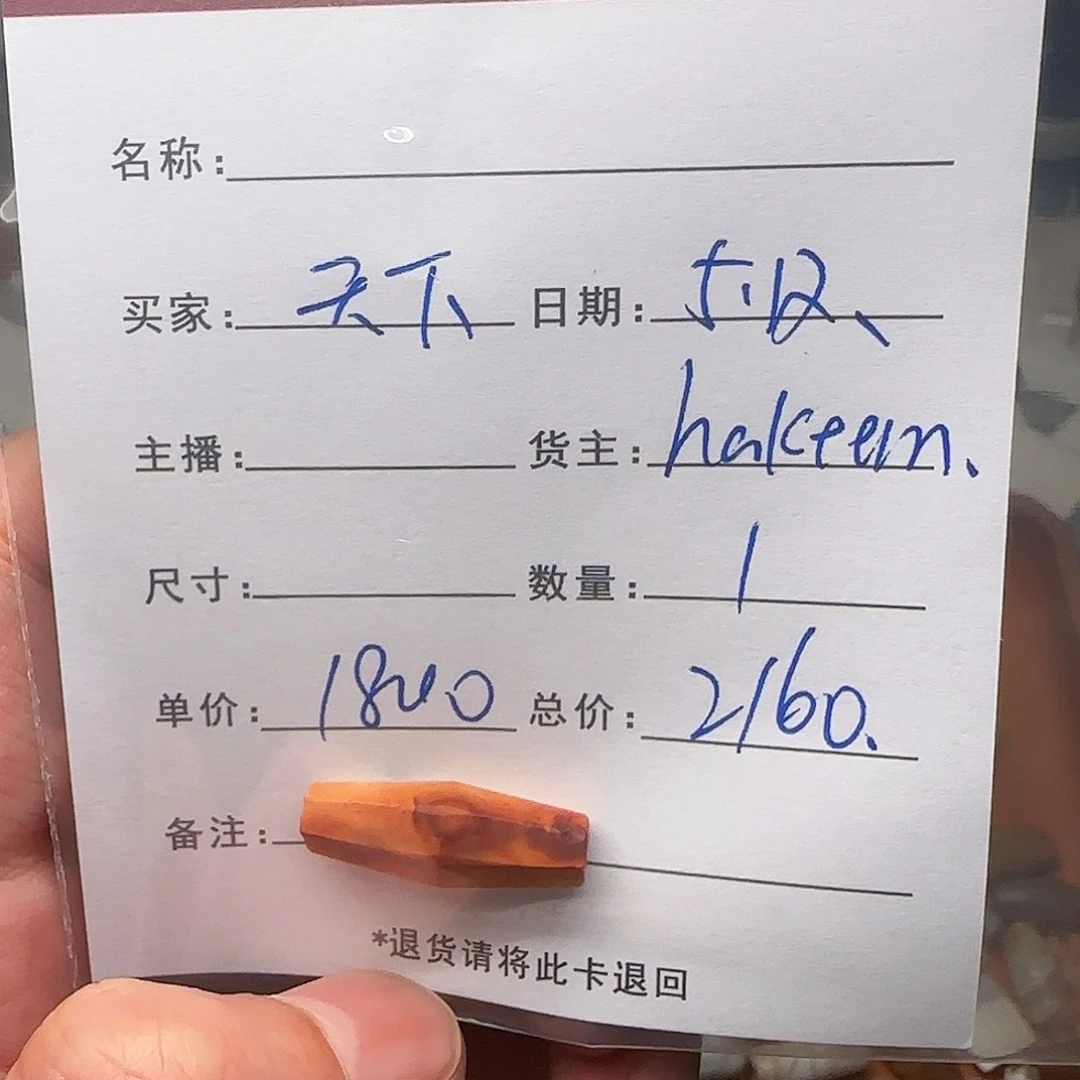 名称:
买家: 天下 日期: 5.12、
主播: 货主: hakeem.
尺寸: 数量: 1
单价: 1800 总价: 2160.
备注:
*退货请将此卡退回